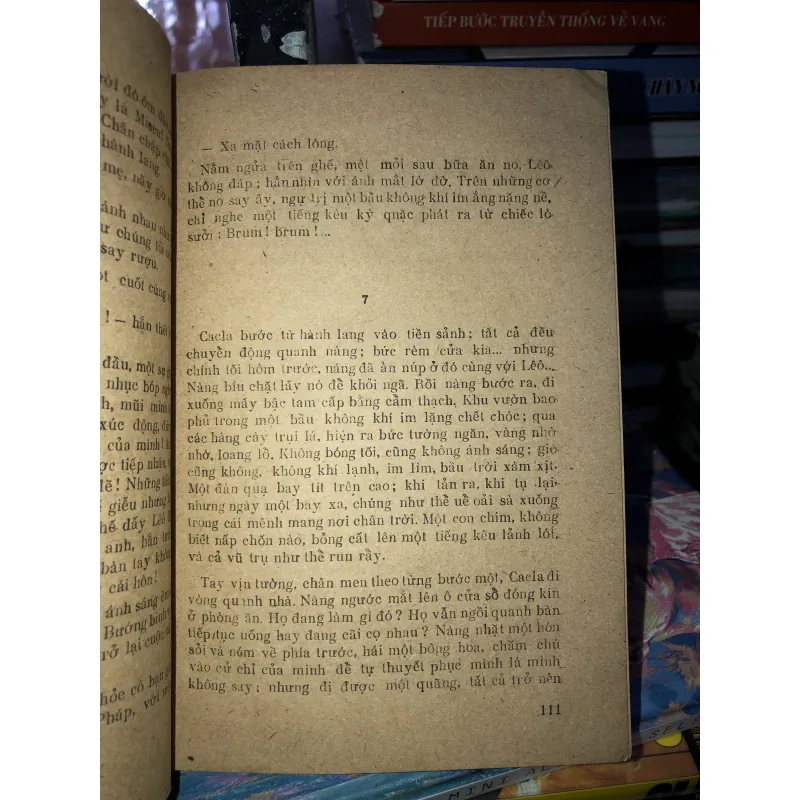 TIẾP BƯỚC TRUYỀN THỐNG VẺ VANG
CHÂN
— Xa mặt cách lòng.
Nằm ngửa trên ghế, mệt mỏi sau bữa ăn no, Lêô
không đáp; hắn nhìn với ánh mắt lờ đờ. Trên những cơ
thể no say ấy, ngự trị một bầu không khí im ắng nặng nề,
chỉ nghe một tiếng kêu kỳ quặc phát ra từ chiếc lò
sưởi: Brum! brum!...
7
Cacla bước từ hành lang vào tiền sảnh; tất cả đều
chuyển động quanh nàng; bức rèm cửa kia... nhưng
chính tối hôm trước, nàng đã ẩn núp ở đó cùng với Lêô...
Nàng bíu chặt lấy nó để khỏi ngã. Rồi nàng bước ra, đi
xuống mấy bậc tam cấp bằng cẩm thạch. Khu vườn bao
phủ trong một bầu không khí im lặng chết chóc; qua
các hàng cây trụi lá, hiện ra bức tường ngăn, vàng nhờ
nhờ, loang lổ. Không bóng tối, cũng không ánh sáng; gió
cũng không, không khí lạnh, im lìm, bầu trời xám xịt.
Một đàn quạ bay tít trên cao; khi tản ra, khi tụ lại
nhưng ngày một bay xa, chúng như thể uể oải sà xuống
trong cái mênh mang nơi chân trời. Một con chim, không
biết nấp chốn nào, bỗng cất lên một tiếng kêu lảnh lót,
và cả vũ trụ như thể run rẩy.
Tay vịn tường, chân men theo từng bước một, Cacla đi
vòng quanh nhà. Nàng ngước mắt lên ô cửa sổ đóng kín
ở phòng ăn. Họ đang làm gì đó? Họ vẫn ngồi quanh bàn
tiếp tục uống hay đang cãi cọ nhau? Nàng nhặt một hòn
sỏi và ném về phía trước, hái một bông hoa, chăm chú
vào cử chỉ của mình để tự thuyết phục mình là mình
không say; nhưng đi được một quãng, tất cả trở nên
111
rời đó ôm đầu
y là Misen!
Chân chấp
hành lang.
mẹ, này giờ
ánh nhau
ư chúng tôi
say rượu.
ột cuối cùng
! — hắn thét
đầu, một sự
nhục bóp
h, mũi mình
xúc động,
của mình!
ợc tiếp nhận,
tẽ! Những
giễu nhưng
hế đẩy Lêô
anh, hắn
bàn tay không
cái hôn!
ánh sáng
Bướng bỉnh
rở lại cuộc
hỏe cô bạn
Pháp, với
MINI
SELL